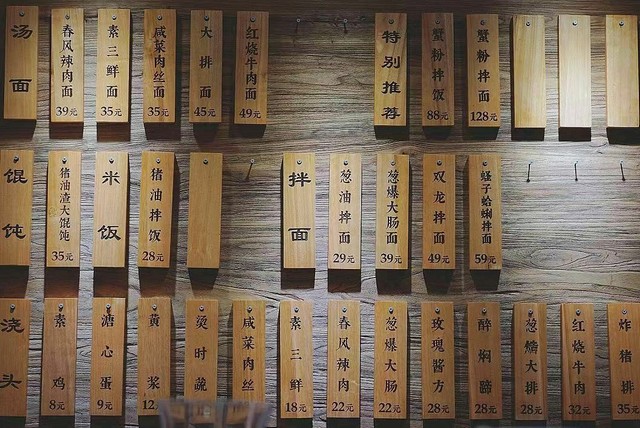 汤面
春风辣肉面 39元
素三鲜面 35元
咸菜肉丝面 35元
大排面 45元
红烧牛肉面 49元
特别推荐
蟹粉拌饭 88元
蟹粉拌面 128元
馄饨
猪油渣大馄饨 35元
米饭
猪油拌饭 28元
拌面
葱油拌面 29元
葱爆大肠面 39元
双龙拌面 49元
蛏子蛤蜊拌面 59元
浇头
素鸡 8元
溏心蛋 9元
黄浆 12
烫时蔬
咸菜肉丝
素三鲜 18元
春风辣肉 22元
葱爆大肠 22元
玫瑰酱方 28元
醉焖蹄 28元
葱㸆大排 28元
红烧牛肉 32元
炸猪排 35元